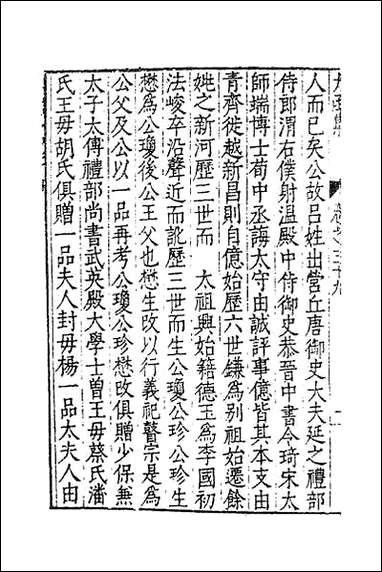 卷之三十九
人而已矣公故呂姓出營丘唐御史大夫延之禮部
侍郎渭右僕射温殿中侍御史恭晉中書令琦宋太
師端博士荀中丞誨太守由誠評事億皆其本支由
青齊徙越新昌則自億始歷六世鎌為别祖始遷餘
姚之新河歷三世而　太祖興始籍德玉為李國初
法峻卒沿聲近而訛歷三世而生公瓊公珍公珍生
懋為公瓊後公王父也懋生改以行義祀瞽宗是為
公父及公以一品再考公瓊公珍懋改俱贈少保兼
太子太傅禮部尚書武英殿大學士曾王母蔡氏潘
氏王毋胡氏俱贈一品夫人封母楊一品太夫人由